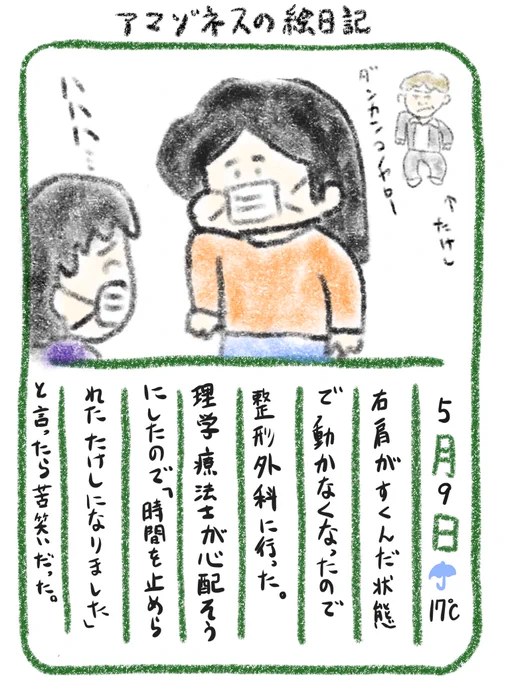 アマゾネスの絵日記
ダンカンコノヤロー
↑たけし
ハハハ…
5月9日
17℃
右肩がすくんだ状態
で動かなくなったので
整形外科に行った。
理学療法士が心配そう
にしたので、「時間を止めら
れたたけしになりました」
と言ったら苦笑いだった。